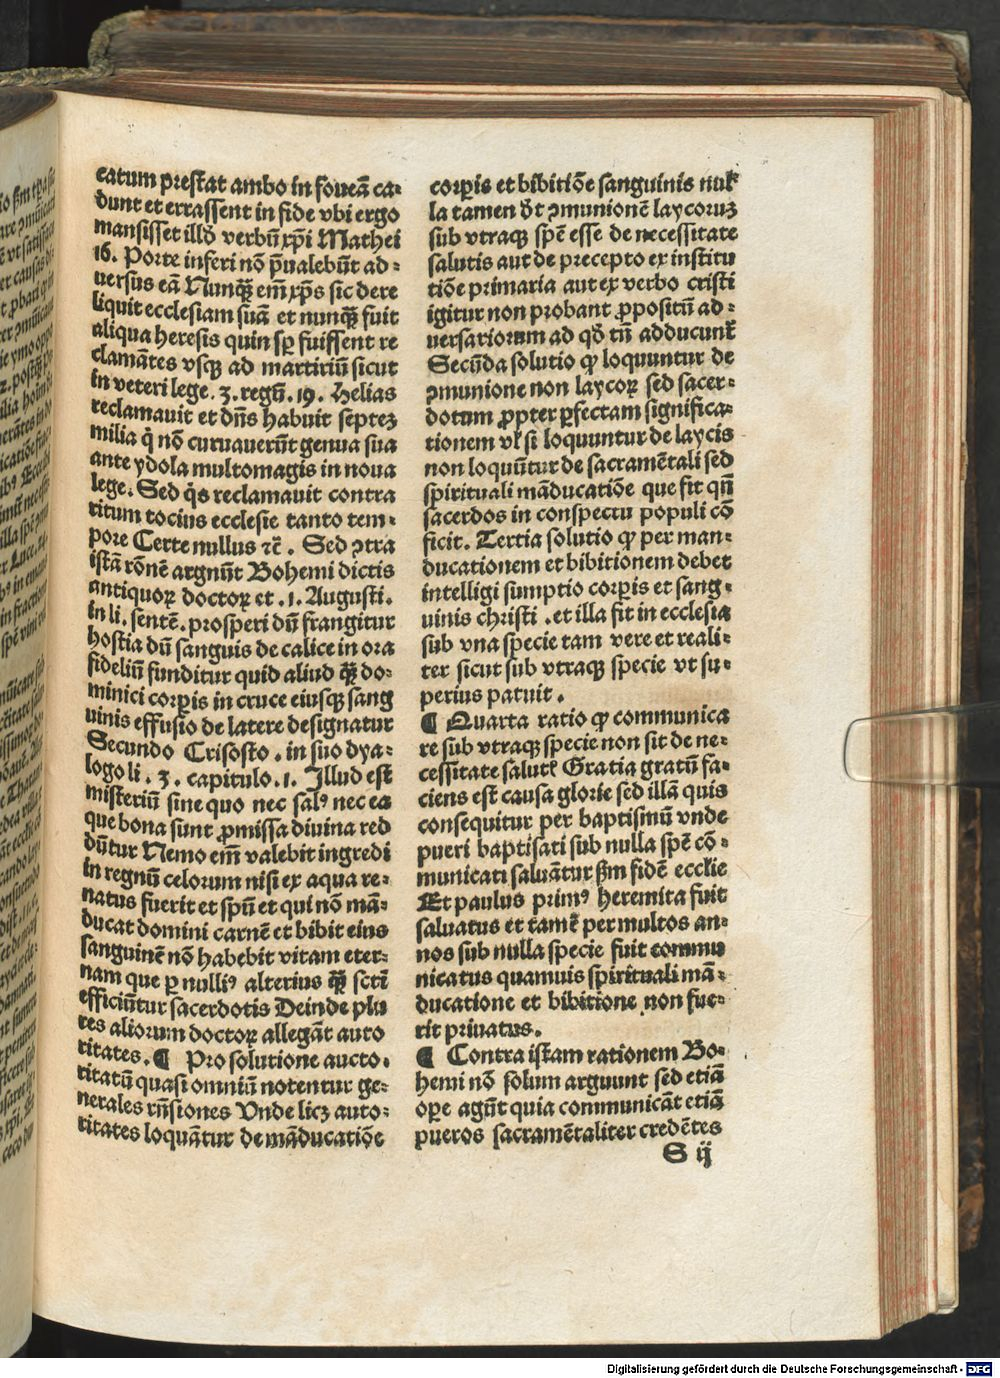 catum prestat ambo in foueā ca⸗
dunt et errassent in fide vbi ergo
mansisset illđ verbū xp̄i Mathei
16. Porte inferi nō p̄ualebūt ad⸗
uersus eā Nunqꝫ em̄ xp̄s sic dere
liquit ecclesiam suā et nunqꝫ fuit
aliqua heresis quin sp̄ fuissent re
clamātes vsqꝫ ad martiriū sicut
in veteri lege. 3. regū. 19. Helias
reclamauit et dn̄s habuit septeꝫ
milia q̇ nō curuauerūt genua sua
ante ydola multomagis in noua
lege. Sed q̇s reclamauit contra
ritum tocius ecclesie tanto tem⸗
pore Certe nullus ꝛc̄. Sed ꝯtra
istā rōnē argnūt Bohemi dictis
antiquoꝝ doctoꝝ et .1. Augusti.
in li. sentē. prosperi dū frangitur
hostia dū sanguis de calice in ora
fideliū funditur quid aliud qꝫ do⸗
minici corp̄is in cruce eiusqꝫ sang
uinis effusio de latere designatur
Secundo Crisosto. in suo dya⸗
logo li. 3. capitulo. 1. Illud est
misteriū sine quo nec salꝰ nec ea
que bona sunt ꝓmissa diuina red
dūtur Nemo em̄ valebit ingredi
in regnū celorum nisi ex aqua re⸗
natus fuerit et spū et qui nō mā⸗
ducat domini carnē et bibit eius
sanguinē nō habebit vitam eter⸗
nam que ꝑ nulliꝰ alterius qꝫ sctī
efficiūtur sacerdotis Deinde plu
res aliorum doctoꝝ allegāt auto
ritates. ¶ Pro solutione aucto⸗
ritatū quasi omniū notentur ge⸗
nerales rn̄siones Vnde licꝫ auto⸗
ritates loquātur de māducatiōe
corp̄is et bibitiōe sanguinis nul
la tamen đt ꝯmunionē laycoruꝫ
sub vtraqꝫ spē esse de necessitate
salutis aut de precepto ex institu
tiōe primaria aut ex verbo cristi
igitur non probant ꝓpositū ad⸗
uersariorum ad qđ tn̄ adducunt̄
Secūda solutio ꝙ loquuntur de
ꝯmunione non laycoꝝ sed sacer⸗
dotum ꝓpter ꝑfectam significa⸗
tionem vl̄ si loquuntur de laycis
non loquūtur de sacramētali sed
spirituali māducatiōe que fit qn̄
sacerdos in conspectu populi cō
ficit. Tertia solutio ꝙ per man⸗
ducationem et bibitionem debet
intelligi sumptio corp̄is et sang⸗
uinis christi .et illa fit in ecclesia
sub vna specie tam vere et reali⸗
ter sicut sub vtraqꝫ specie vt su⸗
perius patuit.
¶ Quarta ratio ꝙ communica
re sub vtraqꝫ specie non sit de ne⸗
cessitate salutꝭ Gratia gratū fa⸗
ciens est causa glorie sed illā quis
consequitur per baptismū vnde
pueri baptisati sub nulla spē cō⸗
municati saluātur ẜm fidē ecclie
Et paulus primꝰ heremita fuit
saluatus et tamē per multos an⸗
nos sub nulla specie fuit commu
nicatus quamuis spirituali mā⸗
ducatione et bibitione non fue⸗
rit priuatus.
¶ Contra istam rationem Bo⸗
hemi nō solum arguunt sed etiā
oꝑe agūt quia communicāt etiā
pueros sacramētaliter credētes
S ij
Digitalisierung gefördert durch die Deutsche Forschungsgemeinschaft - DFG